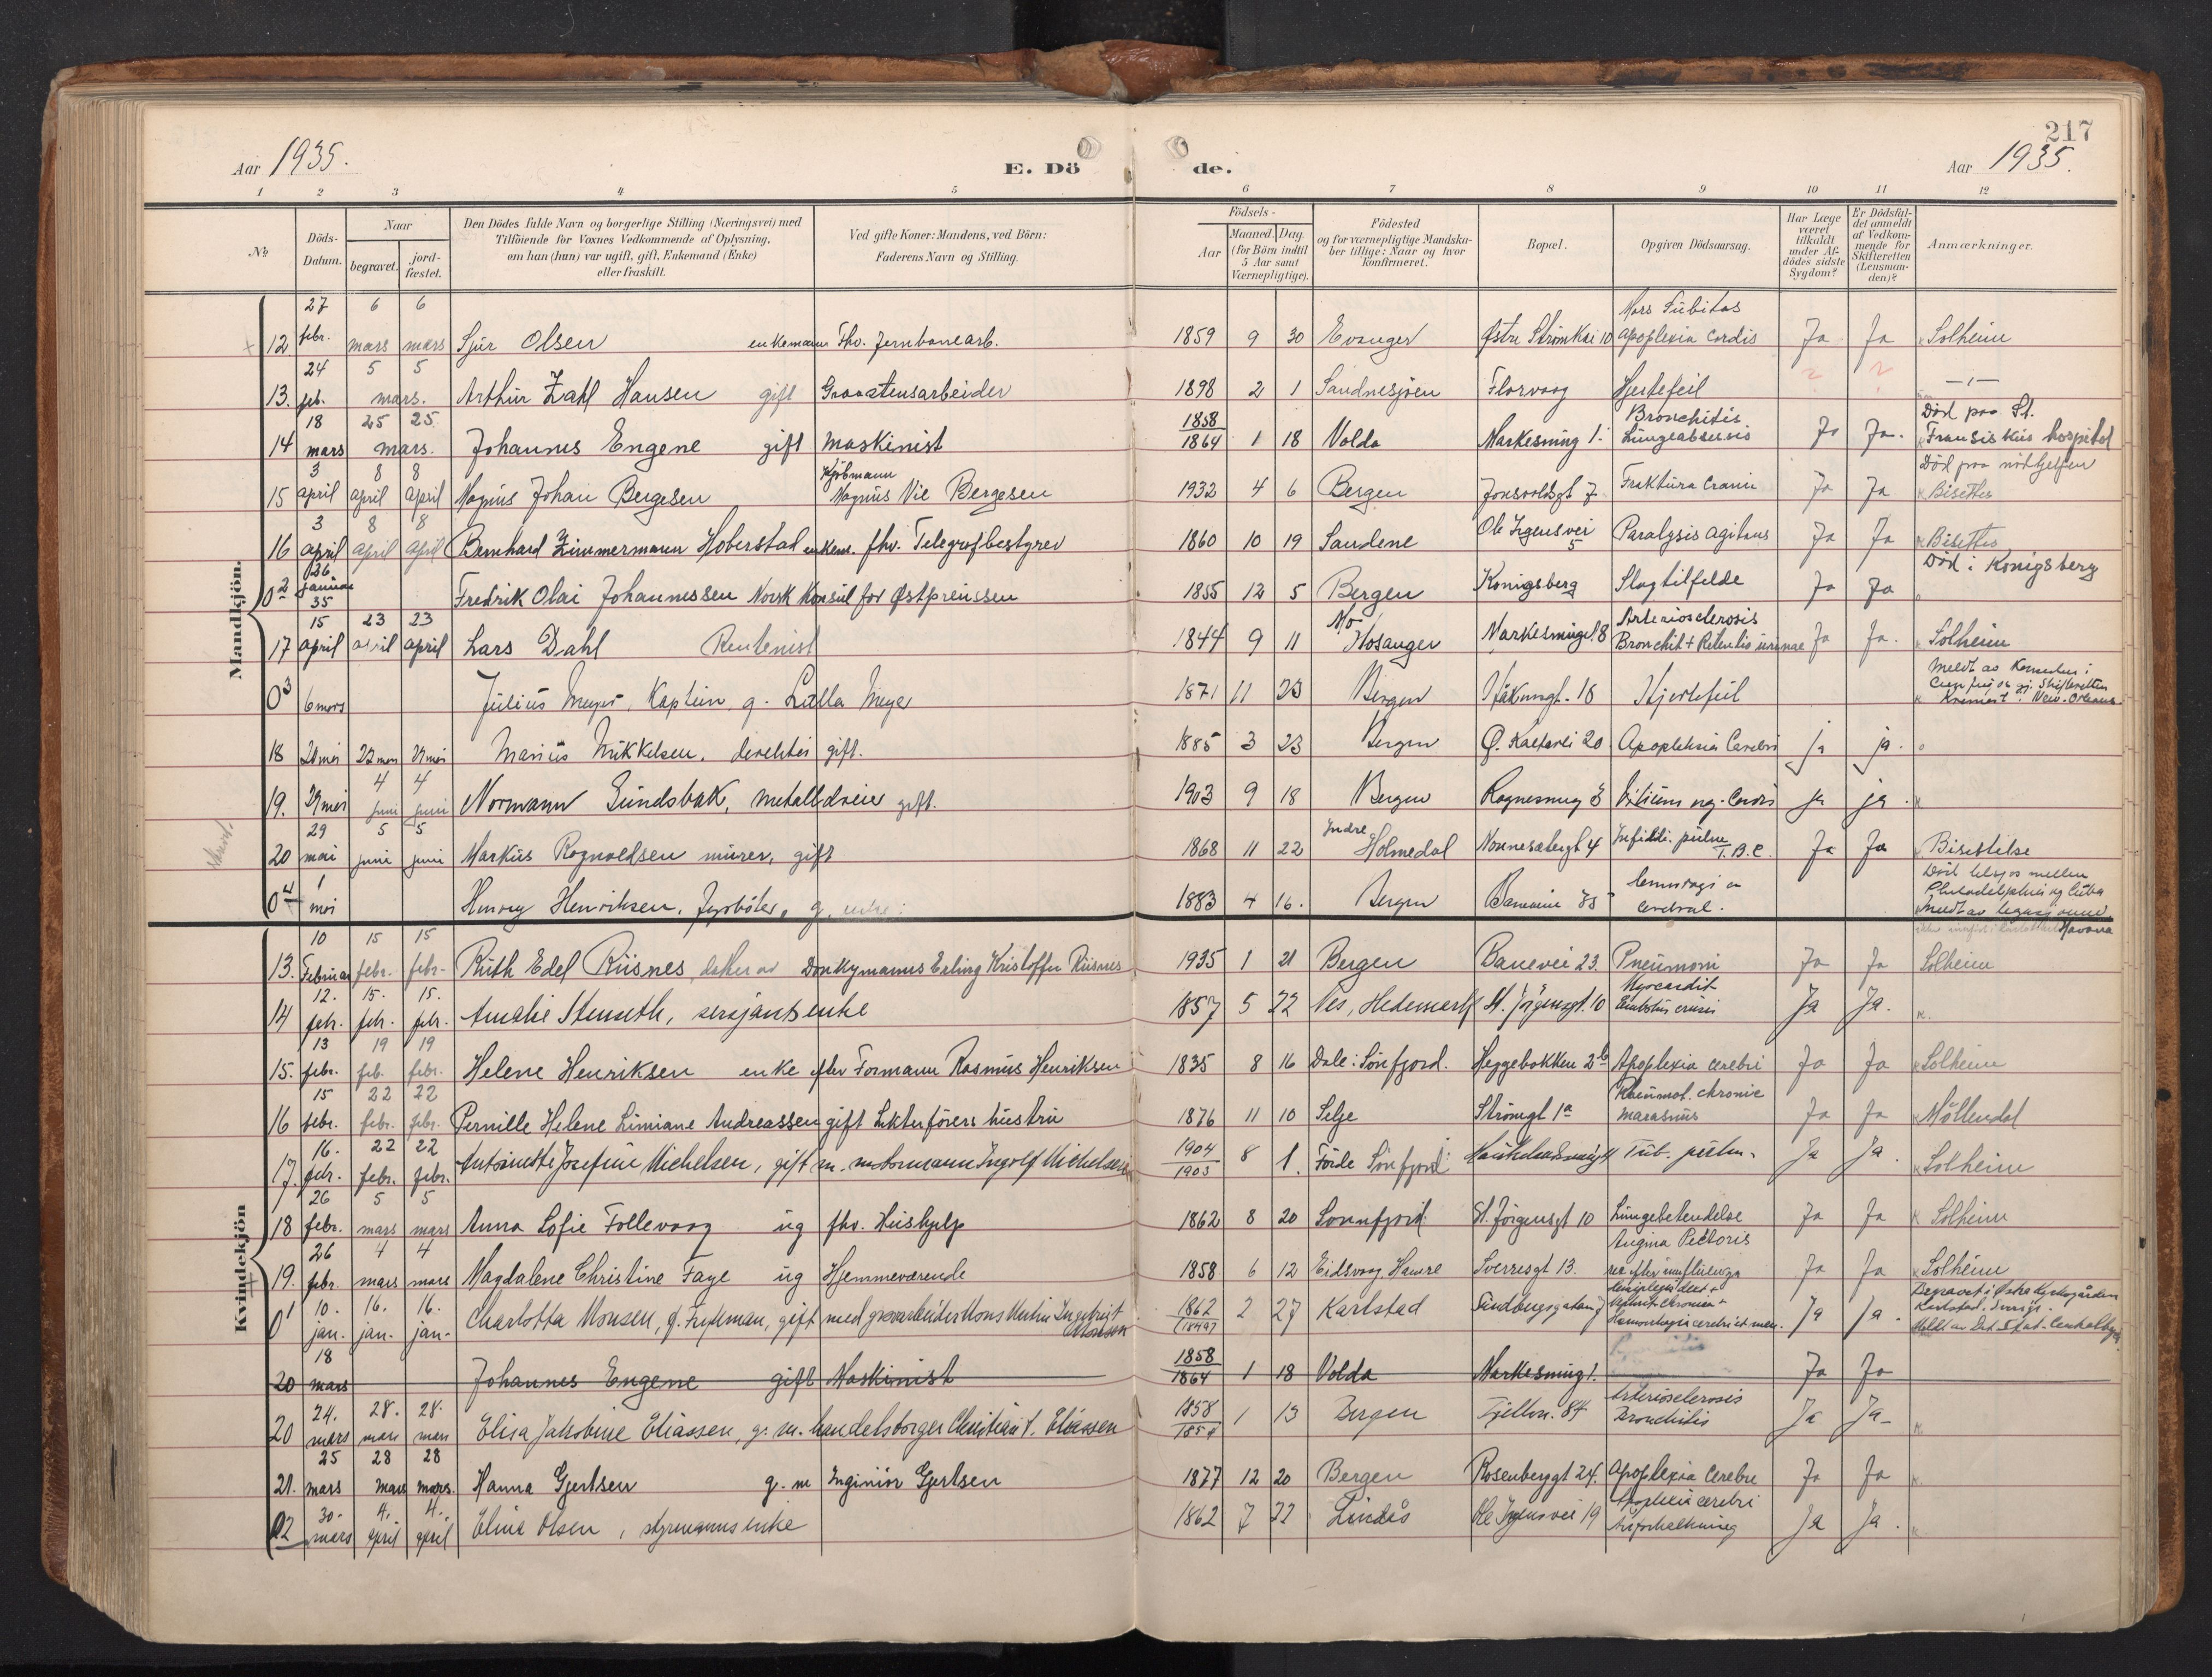 217
Aar 1935.
E. Dö de.
Aar 1935.
1 2 3 4 5 6 7 8 9 10 11 12
No
Döds-Datum.
Naar
begravet.
jord-fæstet.
Den Dödes fulde Navn og borgerlige Stilling (Næringsvei) med
Tilföiende for Voxnes Vedkommende af Oplysning,
om han (hun) var ugift, gift, Enkemand (Enke)
eller fraskilt.
Ved gifte Koner: Mandens, ved Börn:
Faderens Navn og Stilling.
Födsels-
Aar
Maaned. Dag.
(for Börn indtil
5 Aar samt
Værnepligtige).
Födested
og for værnepligtige Mandska-
ber tillige: Naar og hvor
konfirmeret.
Bopæl.
Opgiven Dödsaarsag.
Har Læge
været
tilkaldt
under Af-
dödes sidste
Sygdom?
Er Dödsfal-
det anmeldt
af Vedkom-
mende for
Skifteretten
(Lensman-
den)?
Anmærkninger.
Mandkjön.
12 27 febr. 6 mars 6 mars Sjur Olsen enkemann Fhv. Jernbanearb. 1859 9 30 Evanger Østre Strømkai 10 Mors Subitas Apoplexia Cordis Ja Ja Solheim
13. 24 feb. 5 5 mars. Arthur Zahl Hansen gift Graastensarbeider 1898 2 1 Sandnesjøen Florvaag Hjertefeil — " —
14 18 mars 25 25 mars. Johannes Engene gift Maskinist 1858 1864 1 18 Volda Markesmug 1. Bronchitis. Lungeabscess Ja Ja. Död paa St. Fransiskus hospital
15 3 april 8 april 8 april Magnus Johan Bergesen Kjøbmann Magnus Vie Bergesen 1932 4 6 Bergen Jonsvoldsgt 7 Fraktura Cranii Ja Ja Död paa nödhjelpen Bisettes
16 3 april 8 april 8 april Bernhard Zimmermann Hoberstad enkem. fhv. Telegrafbestyrer 1860 10 19 Sandene Ole Irgensvei 5 Paralysis agitans Ja Ja Bisettes
0 2 26 januar 35 Fredrik Olai Johannessen Norsk Konsul for Østpreussen 1855 12 5 Bergen Konigsberg Slagtilfelde Ja Ja Död i Konigsberg
17 15 april 23 april 23 april Lars Dahl Rentenist 1844 9 11 Mo Hosanger Markesmuget 8 Arteriosclerosis Bronchit + Retentio urinae Ja Ja. Solheim
0 3 6 mars Julius Meyer, Kaptein, g. Lalla Meyer 1871 11 23 Bergen 18 Hjertefeil New-Orleans.
18 20 mai 27 mai Marius Mikkelsen, direktör gift. 1885 3 23 Bergen Ø. Kalfarli 20 Apopleksia Cerebri ja ja.
19. 29 mai 4 juni 4 juni Normann Sundsbak, metalldreier gift. 1903 9 18 Bergen Rognesmug 3 Vitium org. Cordis ja ja.
20 29 mai 5 juni 5 juni Markus Rognvaldsen murer, gift 1868 11 22 Indre Holmedal Nonnesetergt 4 T.B.C. Ja Ja Bisettelse
0 4 1 mai Henry Henriksen, Fyrböter, g. 1883 4 16. Bergen cerebral. Död ombord mellem Philadelphia og Cuba Havana
Kvindekjön
13. 10 Februar 15 febr. 15 febr. Ruth Edel Riisnes, datter av Donkymanns Erling Kristoffer Riisnes 1935 1 21 Bergen Banevei 23. Pneumoni Ja Ja Solheim
14 12. febr. 15. febr. 15. febr. Amalie Stenseth, sersjants enke 1857 5 22 Nes, Hedemark St. Jörgensgt. 10 Myocardit Ja Ja.
15. 13 febr. 19 feb. 19 febr. Helene Henriksen enke efter Formann Rasmus Henriksen 1835 8 16 Dale i Sönfjord. Heggebakken 2b Apoplexia cerebri Ja Ja Solheim
16 15 febr. 22 febr. 22 febr. Pernille Helene Limiane Andreassen gift Lekterførers hustru 1876 11 10 Selje Strömgt 1a Rheumat. chronic marasmus Ja Ja Möllendal
17. 16. febr. 22 febr. 22 febr. Antoinette Josefine Michelsen, gift m. motormann Ingolf Michelsen 1904 1905 8 1. Förde Sönfjord Tub. pulm. Ja Ja. Solheim
18 26 febr. 5 mars 5 mars Anna Sofie Follevaag ug fhv. Hushjelp 1862 8 20 Sonnfjord St. Jörgensgt 10 Lungebetendelse Ja Ja Solheim
19. 26 febr. 4 mars 4 mars Magdalene Christine Faye ug Hjemmeværende 1858 6 12 Eidsvaag Hamre Sverresgt 13. Angina Pectoris efter influenza Ja Ja Solheim
0 1 10. jan. 16. jan. 16. jan. Charlotta Monsen, f. gift med Mons Martin Ingebrigt Monsen 1862 (1849?) 2 27 Karlstad Ja Ja. Begravet i Østre Kyrkogården Karlstad. Sverige.
20 18 mars Johannes Engene gift Maskinist 1858 1864 1 18 Volda Markesmug 1. Ja Ja
20 24. mars 28. mars 28. mars Elisa Jakobine Eliassen, g. m. handelsborger Christian F. Eliassen 1858 1854 1 13 Bergen Fjellvn. 84 Arteriosclerosis Bronchitis Ja Ja
21. 25 mars 28 mars 28 mars. Hanna Gjertsen g. m Inginiör Gjertsen 1877 12 20 Bergen Rosenberggt 24. Apoplexia Cerebri Ja Ja
22 30. mars 4. april 4. april Elina Olsen, styrmanns enke 1862 7 22 Lindås Ole Irgensvei 19 Apoplexia cerebri Årforkalkning Ja Ja.